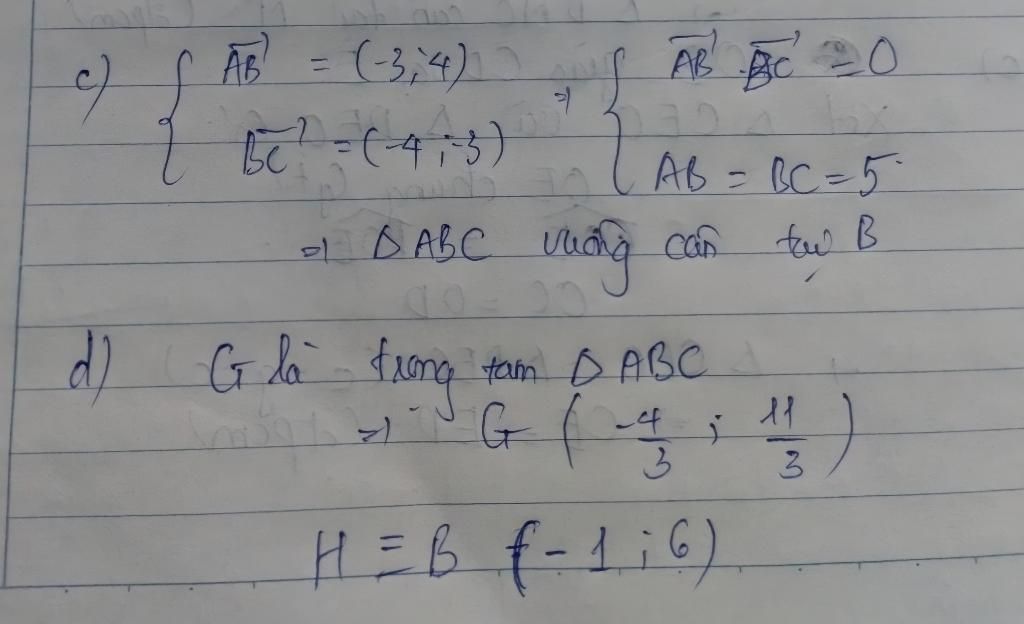 c) { \overrightarrow{AB} = (-3;4) ⇒ { \overrightarrow{AB} . \overrightarrow{BC} = 0
\overrightarrow{BC} = (-4;-3) AB = BC = 5
⇒ Δ ABC vuông cân tại B
d) G là trong tam Δ ABC
⇒ G (-4/3 ; 11/3)
H ≡ B (-1;6)